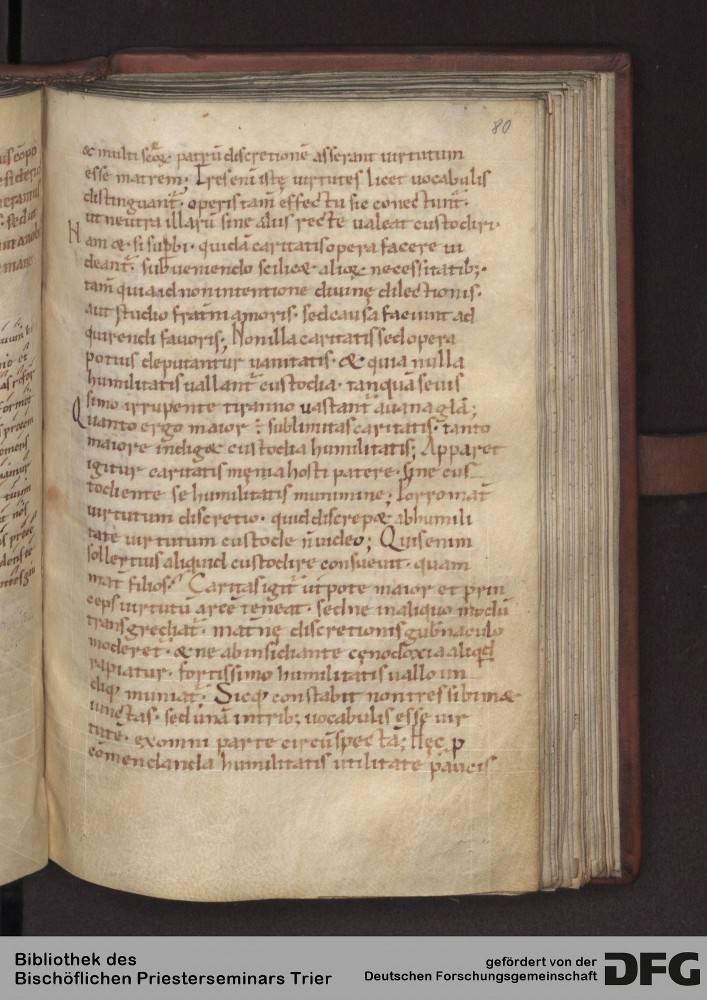 80
& multi scōꝝ patrū discretionē asserant uirtutum
esse matrem; Tres enī istę uirtutes licet uocabulis
distinguant᷒ · operis tam̄ effectu sic conectunt᷒ ·
ut neutra illarū sine aliis recte ualeat custodiri ·
Nam & si supbi · quidā caritatis opera facere ui
deant᷒ · subueniendo scilic& alioꝝ necessitatib; ·
tam̄ quia id non intentione diuinę dilectionis ·
aut studio fraterni amoris · sed causa faciunt ad
quirendi fauoris; Non illa caritatis sed opera
potius deputantur uanitatis · & quia nulla
humilitatis uallant᷒ custodia · tanquā seuis
simo irrupente tiranno uastant᷒ a uana glā;
Quanto ergo maior ÷ sublimitas caritatis · tanto
maiore indig& custodia humilitatis; Apparet
igitur caritatis męnia hosti patere · sine cus
todiente se humilitatis munimine; Porro mat᷒
uirtutum discretio · quid discrep& ab humili
tate uirtutum custode n̄ uideo; Quis enim
sollertius aliquid custodire consueuit · quam
mat᷒ filios? Caritas igit᷒ utpote maior et prin
ceps uirtutū arcē teneat · sed ne in aliquo modū
transgrediat᷒ · mat᷒ne discretionis gub̄naculo
moderet᷒ · & ne ab insidiante cęnodoxia aliqd
rapiatur · fortissimo humilitatis uallo un
diq; muniat᷒ · Sicq; constabit non tres sibim&
iunctas · sed unā in trib; uocabulis esse uir
tutē · ex omni parte circūspectā; Hęc ꝑ
cōmendanda humilitatis utilitate paucis
Bibliothek des
Bischöflichen Priesterseminars Trier
gefördert von der
Deutschen Forschungsgemeinschaft
DFG